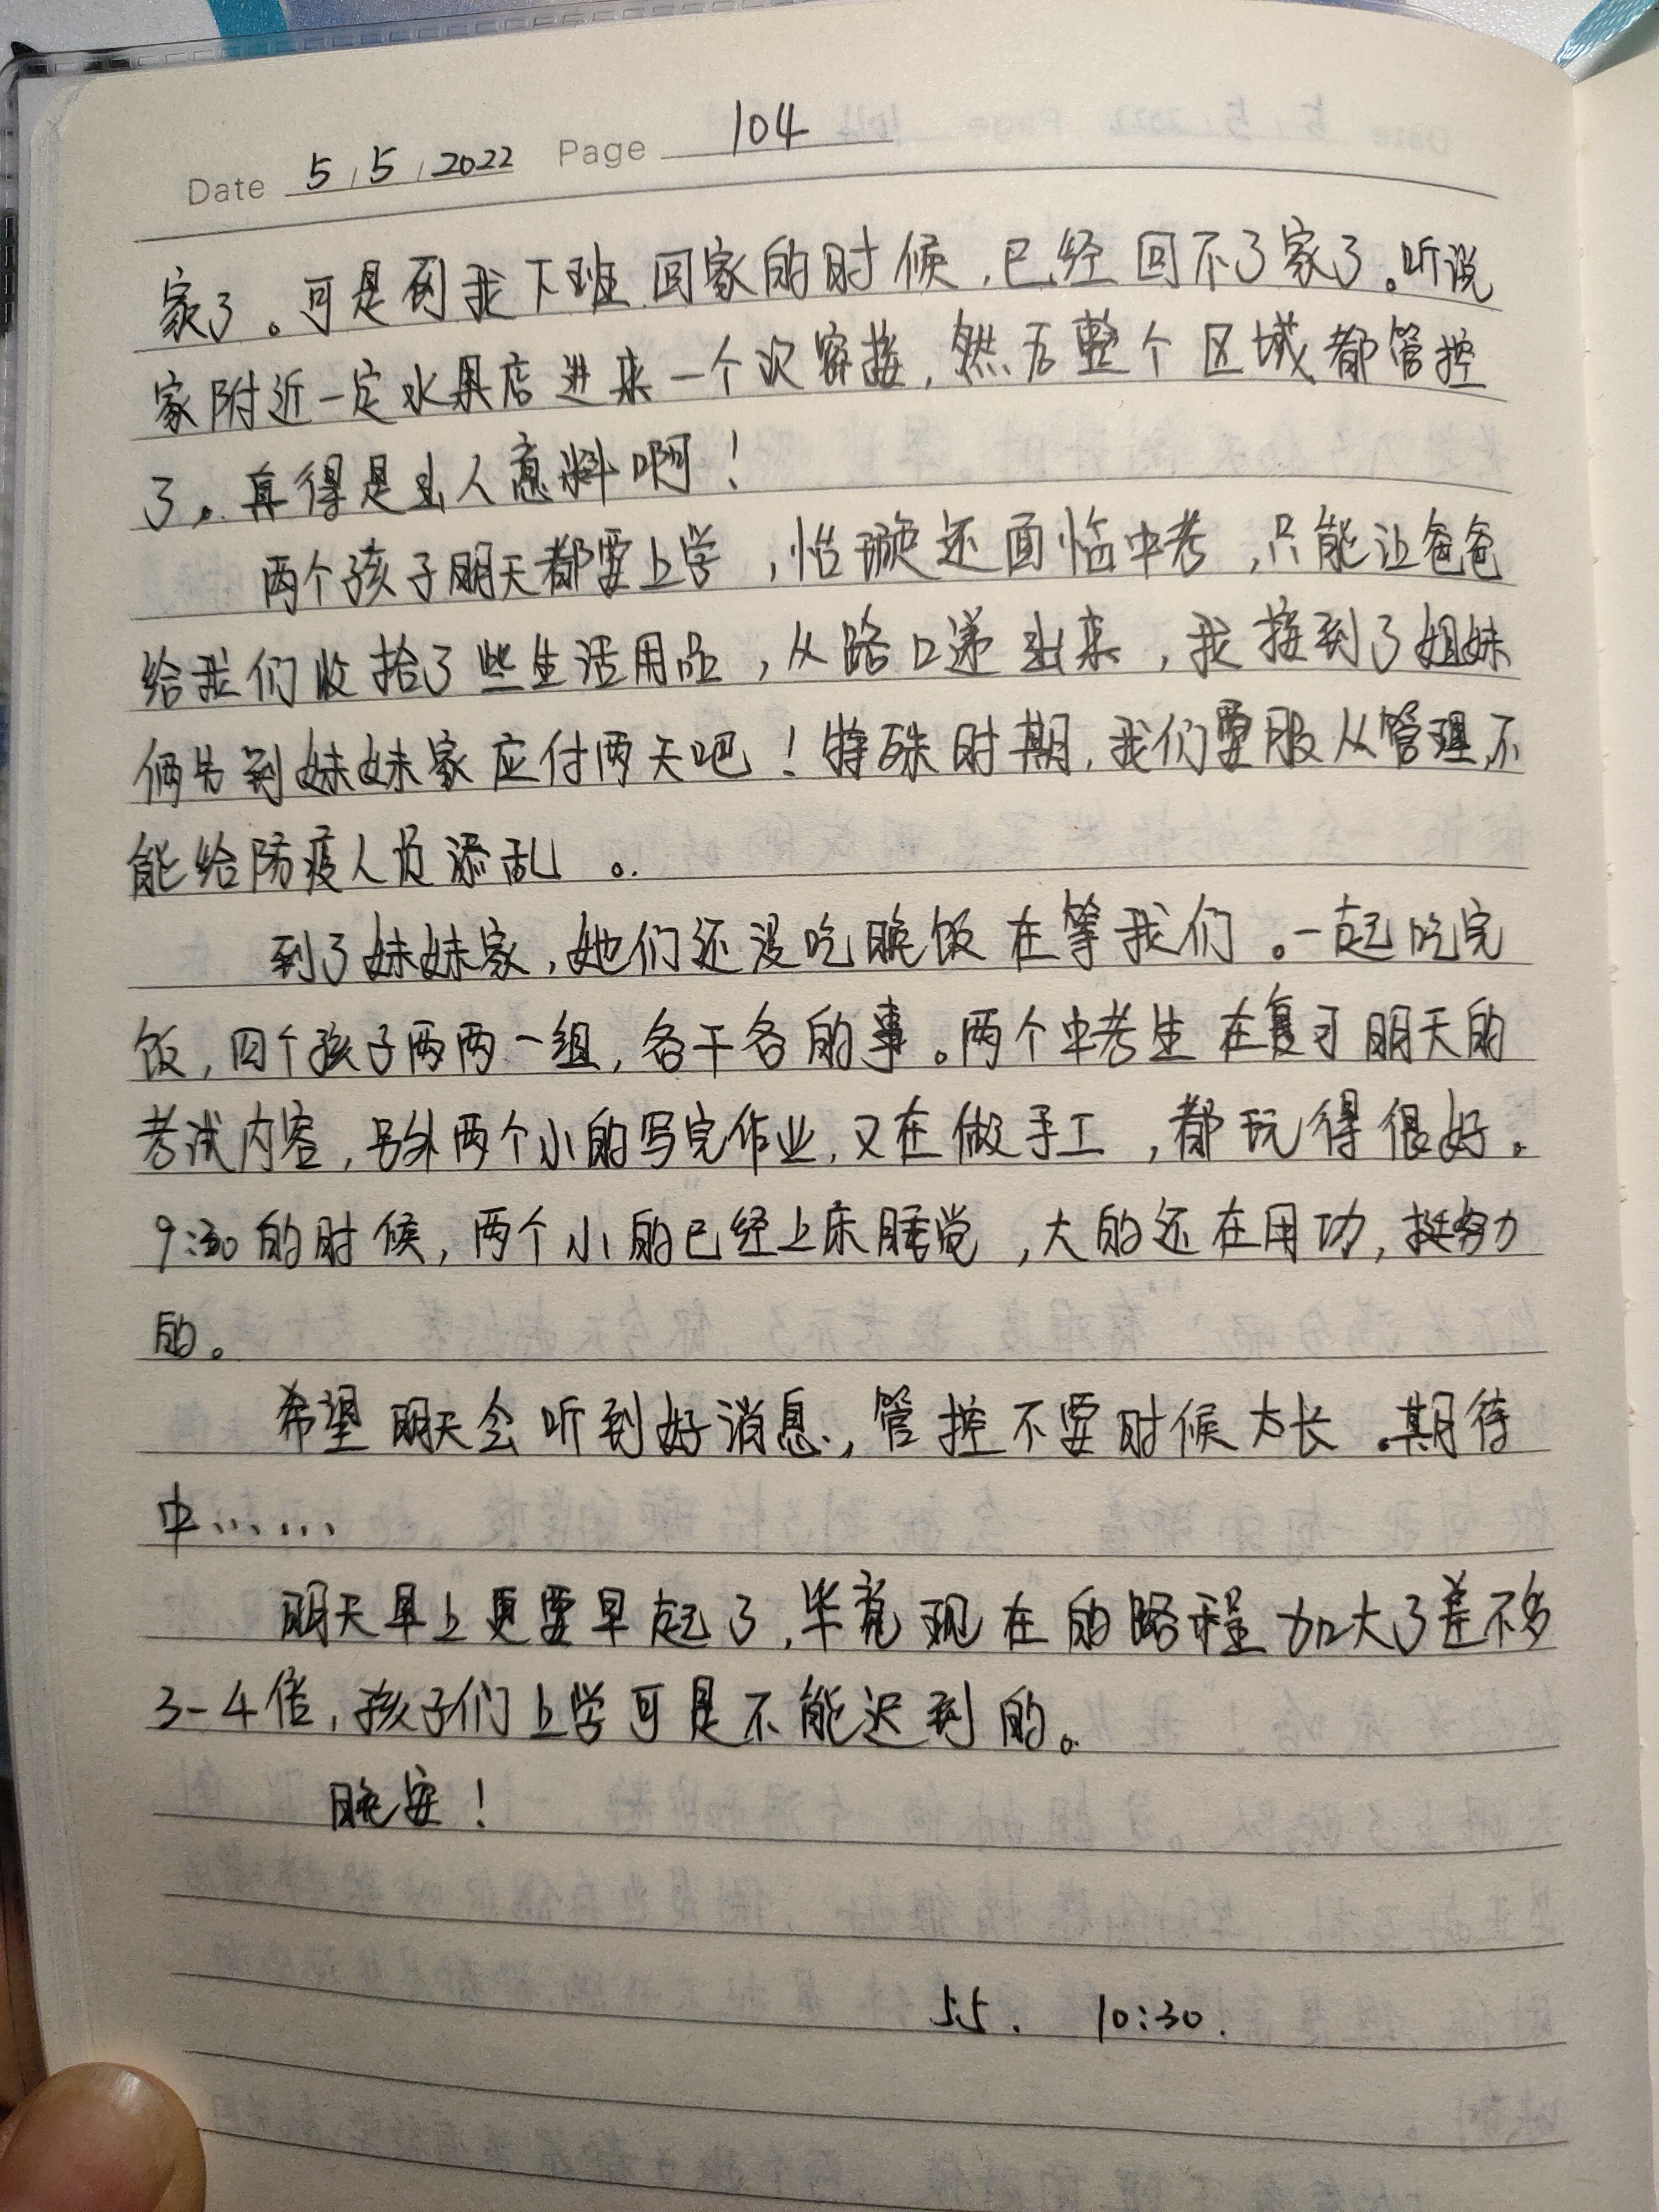 Date 5/5/2022 Page 104
家了。可是到我下班回家的时候,已经回不了家了。听说
家附近一定水果店进来一个次密接,然后整个区域都管控
了。真得是出人意料啊!
两个孩子明天都要上学,怡璇还面临中考,只能让爸爸
给我们收拾了些生活用品,从路口递出来,我接到了姐妹
俩先到妹妹家应付两天吧!特殊时期,我们要服从管理,不
能给防疫人员添乱。
到了妹妹家,她们还没吃晚饭在等我们。一起吃完
饭,四个孩子两两一组,各干各的事。两个中考生在复习明天的
考试内容,另外两个小的写完作业,又在做手工,都玩得很好。
9:30的时候,两个小的已经上床睡觉,大的还在用功,挺努力
的。
希望明天会听到好消息,管控不要时候太长。期待
中……
明天早上更要早起了,毕竟现在的路程加大了差不多
3-4倍,孩子们上学可是不能迟到的。
晚安!
5.5. 10:30.